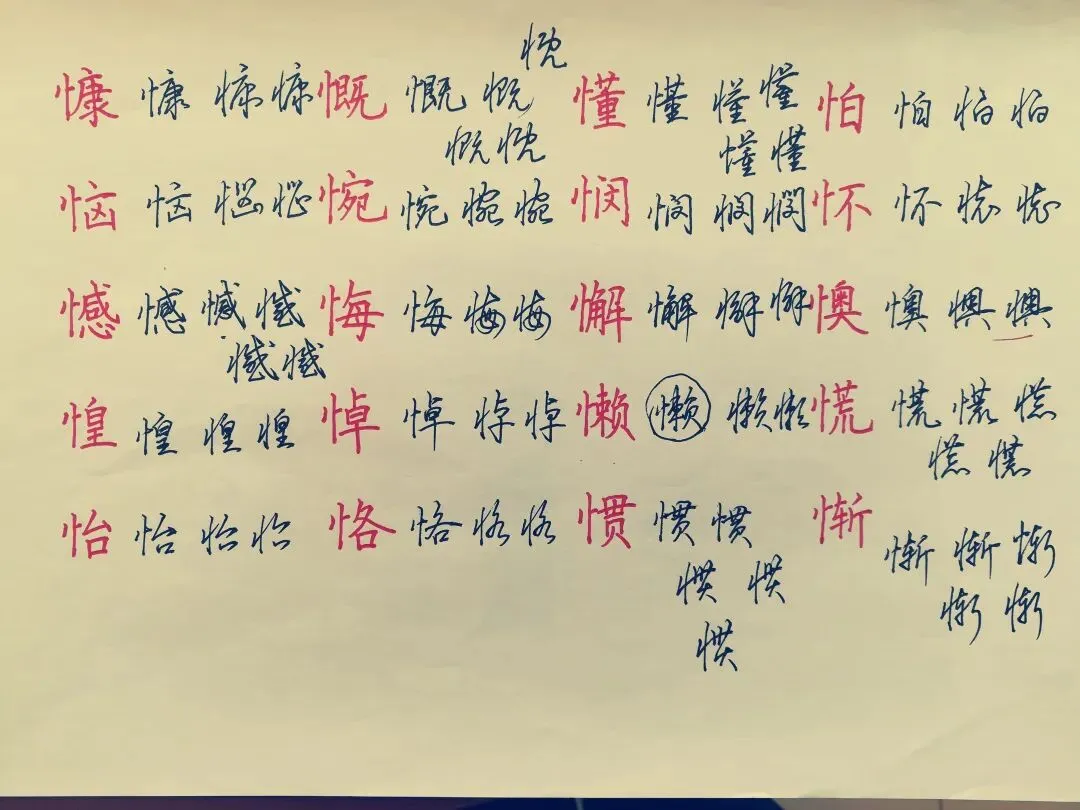 慨
慷 慷 慷 慷 慨 慨 慨 懂 懂 懂 懂 怕 怕 怕 怕
慨 慨 懂 懂
恼 恼 恼 恼 惋 惋 惋 惋 悯 悯 悯 悯 怀 怀 怀 怀
憾 憾 憾 憾 悔 悔 悔 悔 懈 懈 懈 懈 懊 懊 懊 懊
憾 憾
惶 惶 惶 惶 悼 悼 悼 悼 懒 懒 懒 懒 慌 慌 慌 慌
慌 慌
怡 怡 怡 怡 恪 恪 恪 恪 惯 惯 惯 惭 惭 惭 惭
惯 惯 惭 惭
惯